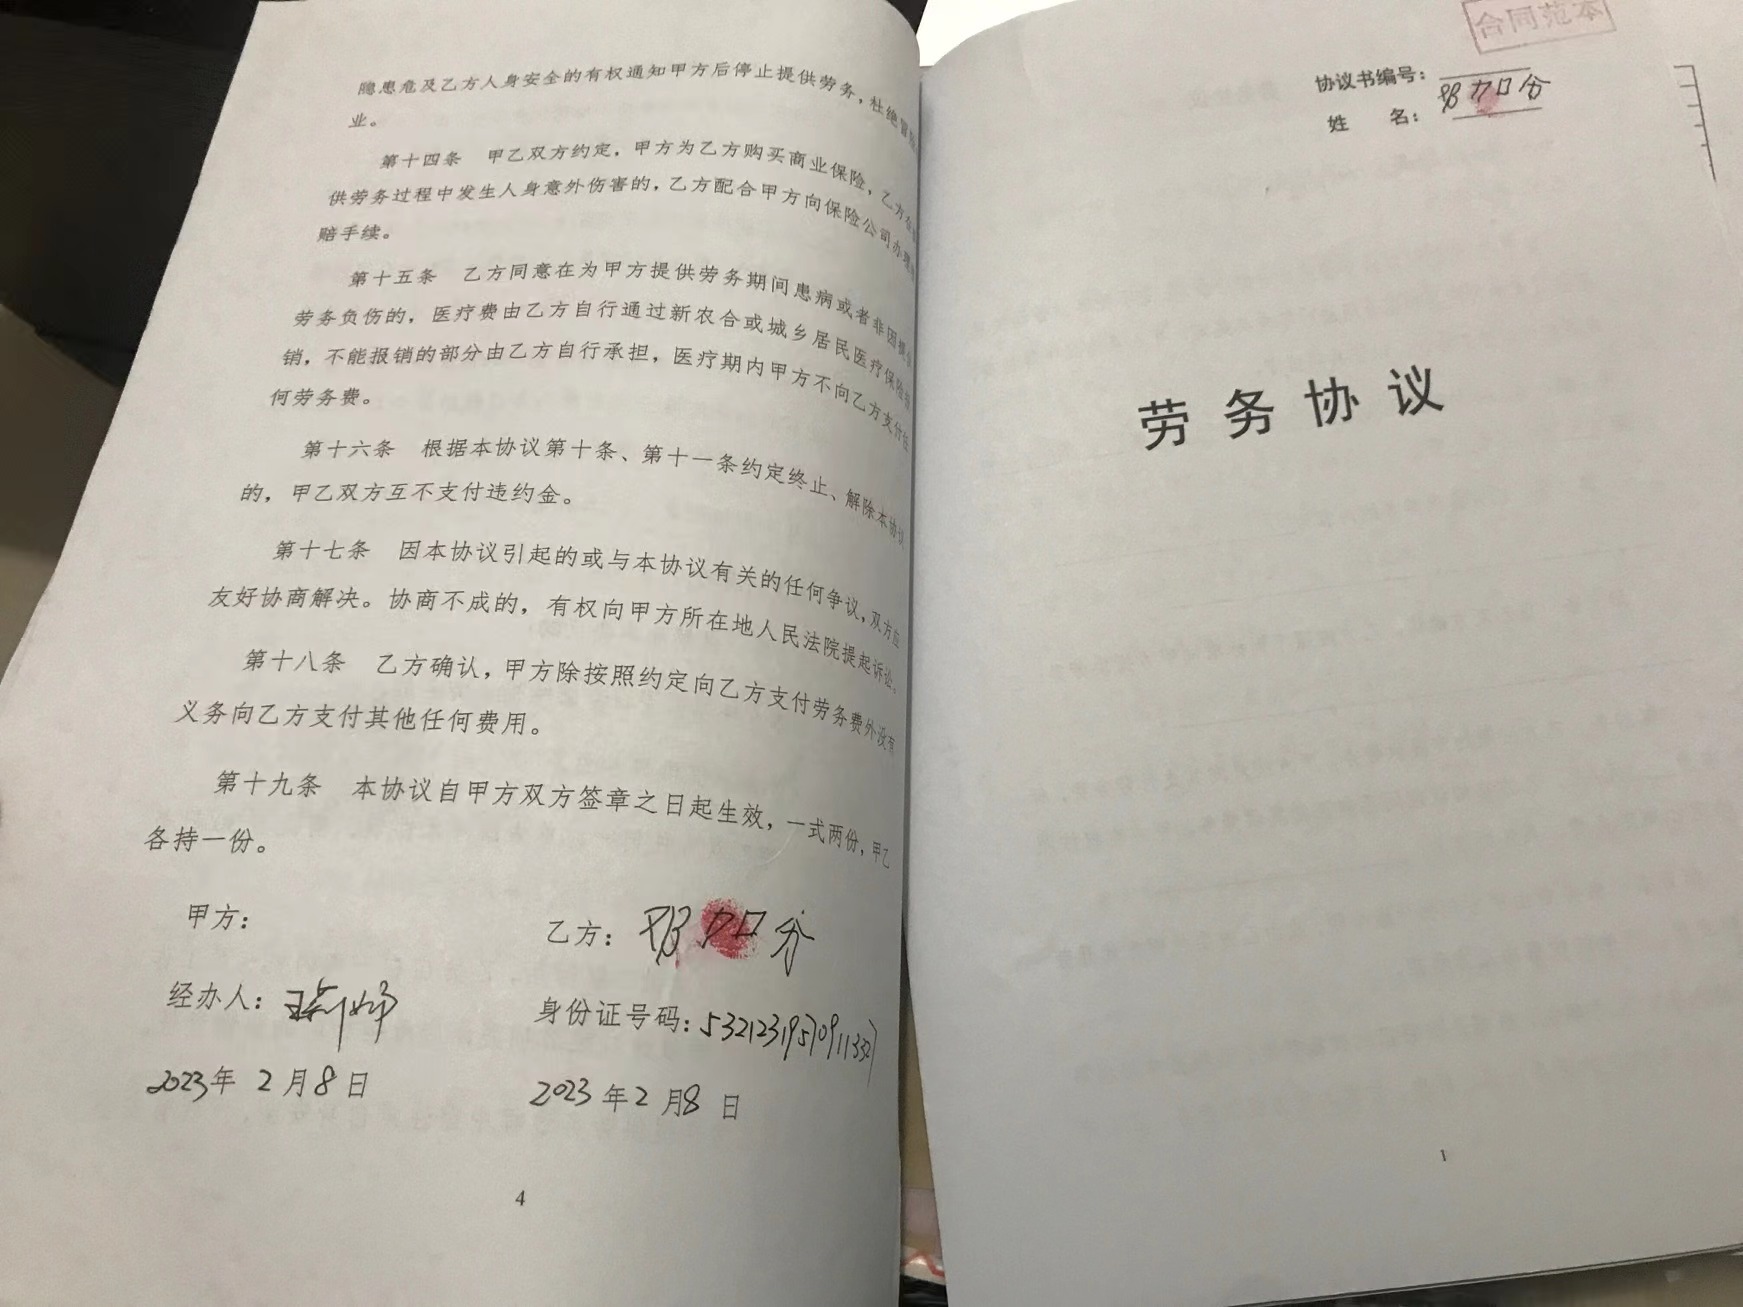 隐患危及乙方人身安全的有权通知甲方后停止提供劳务，杜绝冒
业。
第十四条 甲乙双方约定，甲方为乙方购买商业保险，乙方在
供劳务过程中发生人身意外伤害的，乙方配合甲方向保险公司办理
赔手续。
第十五条 乙方同意在为甲方提供劳务期间患病或者非因提供
劳务负伤的，医疗费由乙方自行通过新农合或城乡居民医疗保险
销，不能报销的部分由乙方自行承担，医疗期内甲方不向乙方支付任
何劳务费。
第十六条 根据本协议第十条、第十一条约定终止、解除本协议
的，甲乙双方互不支付违约金。
第十七条 因本协议引起的或与本协议有关的任何争议，双方应
友好协商解决。协商不成的，有权向甲方所在地人民法院提起诉讼。
第十八条 乙方确认，甲方除按照约定向乙方支付劳务费外没有
义务向乙方支付其他任何费用。
第十九条 本协议自甲方双方签章之日起生效，一式两份，甲乙
各持一份。
甲方：
乙方： 加分
经办人：
身份证号码：532123195709113327
2023年 2 月 8 日
2023 年 2 月 8 日
4
合同范本
协议书编号：
姓 名： 加分
劳务协议
1